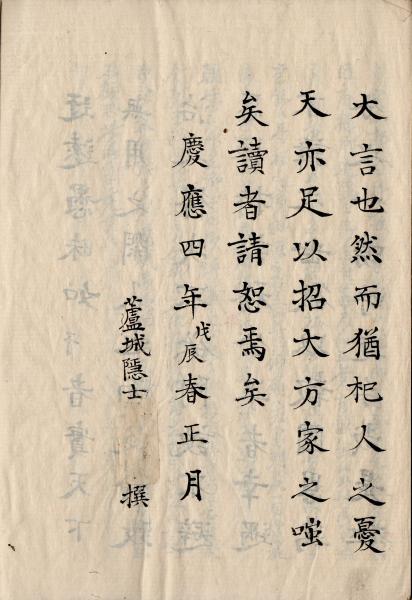 大言也然而猶杞人之憂
天亦足以招大方家之嗤
矣讀者請恕焉矣
慶應四年戊辰春正月
蘆城隱士 撰